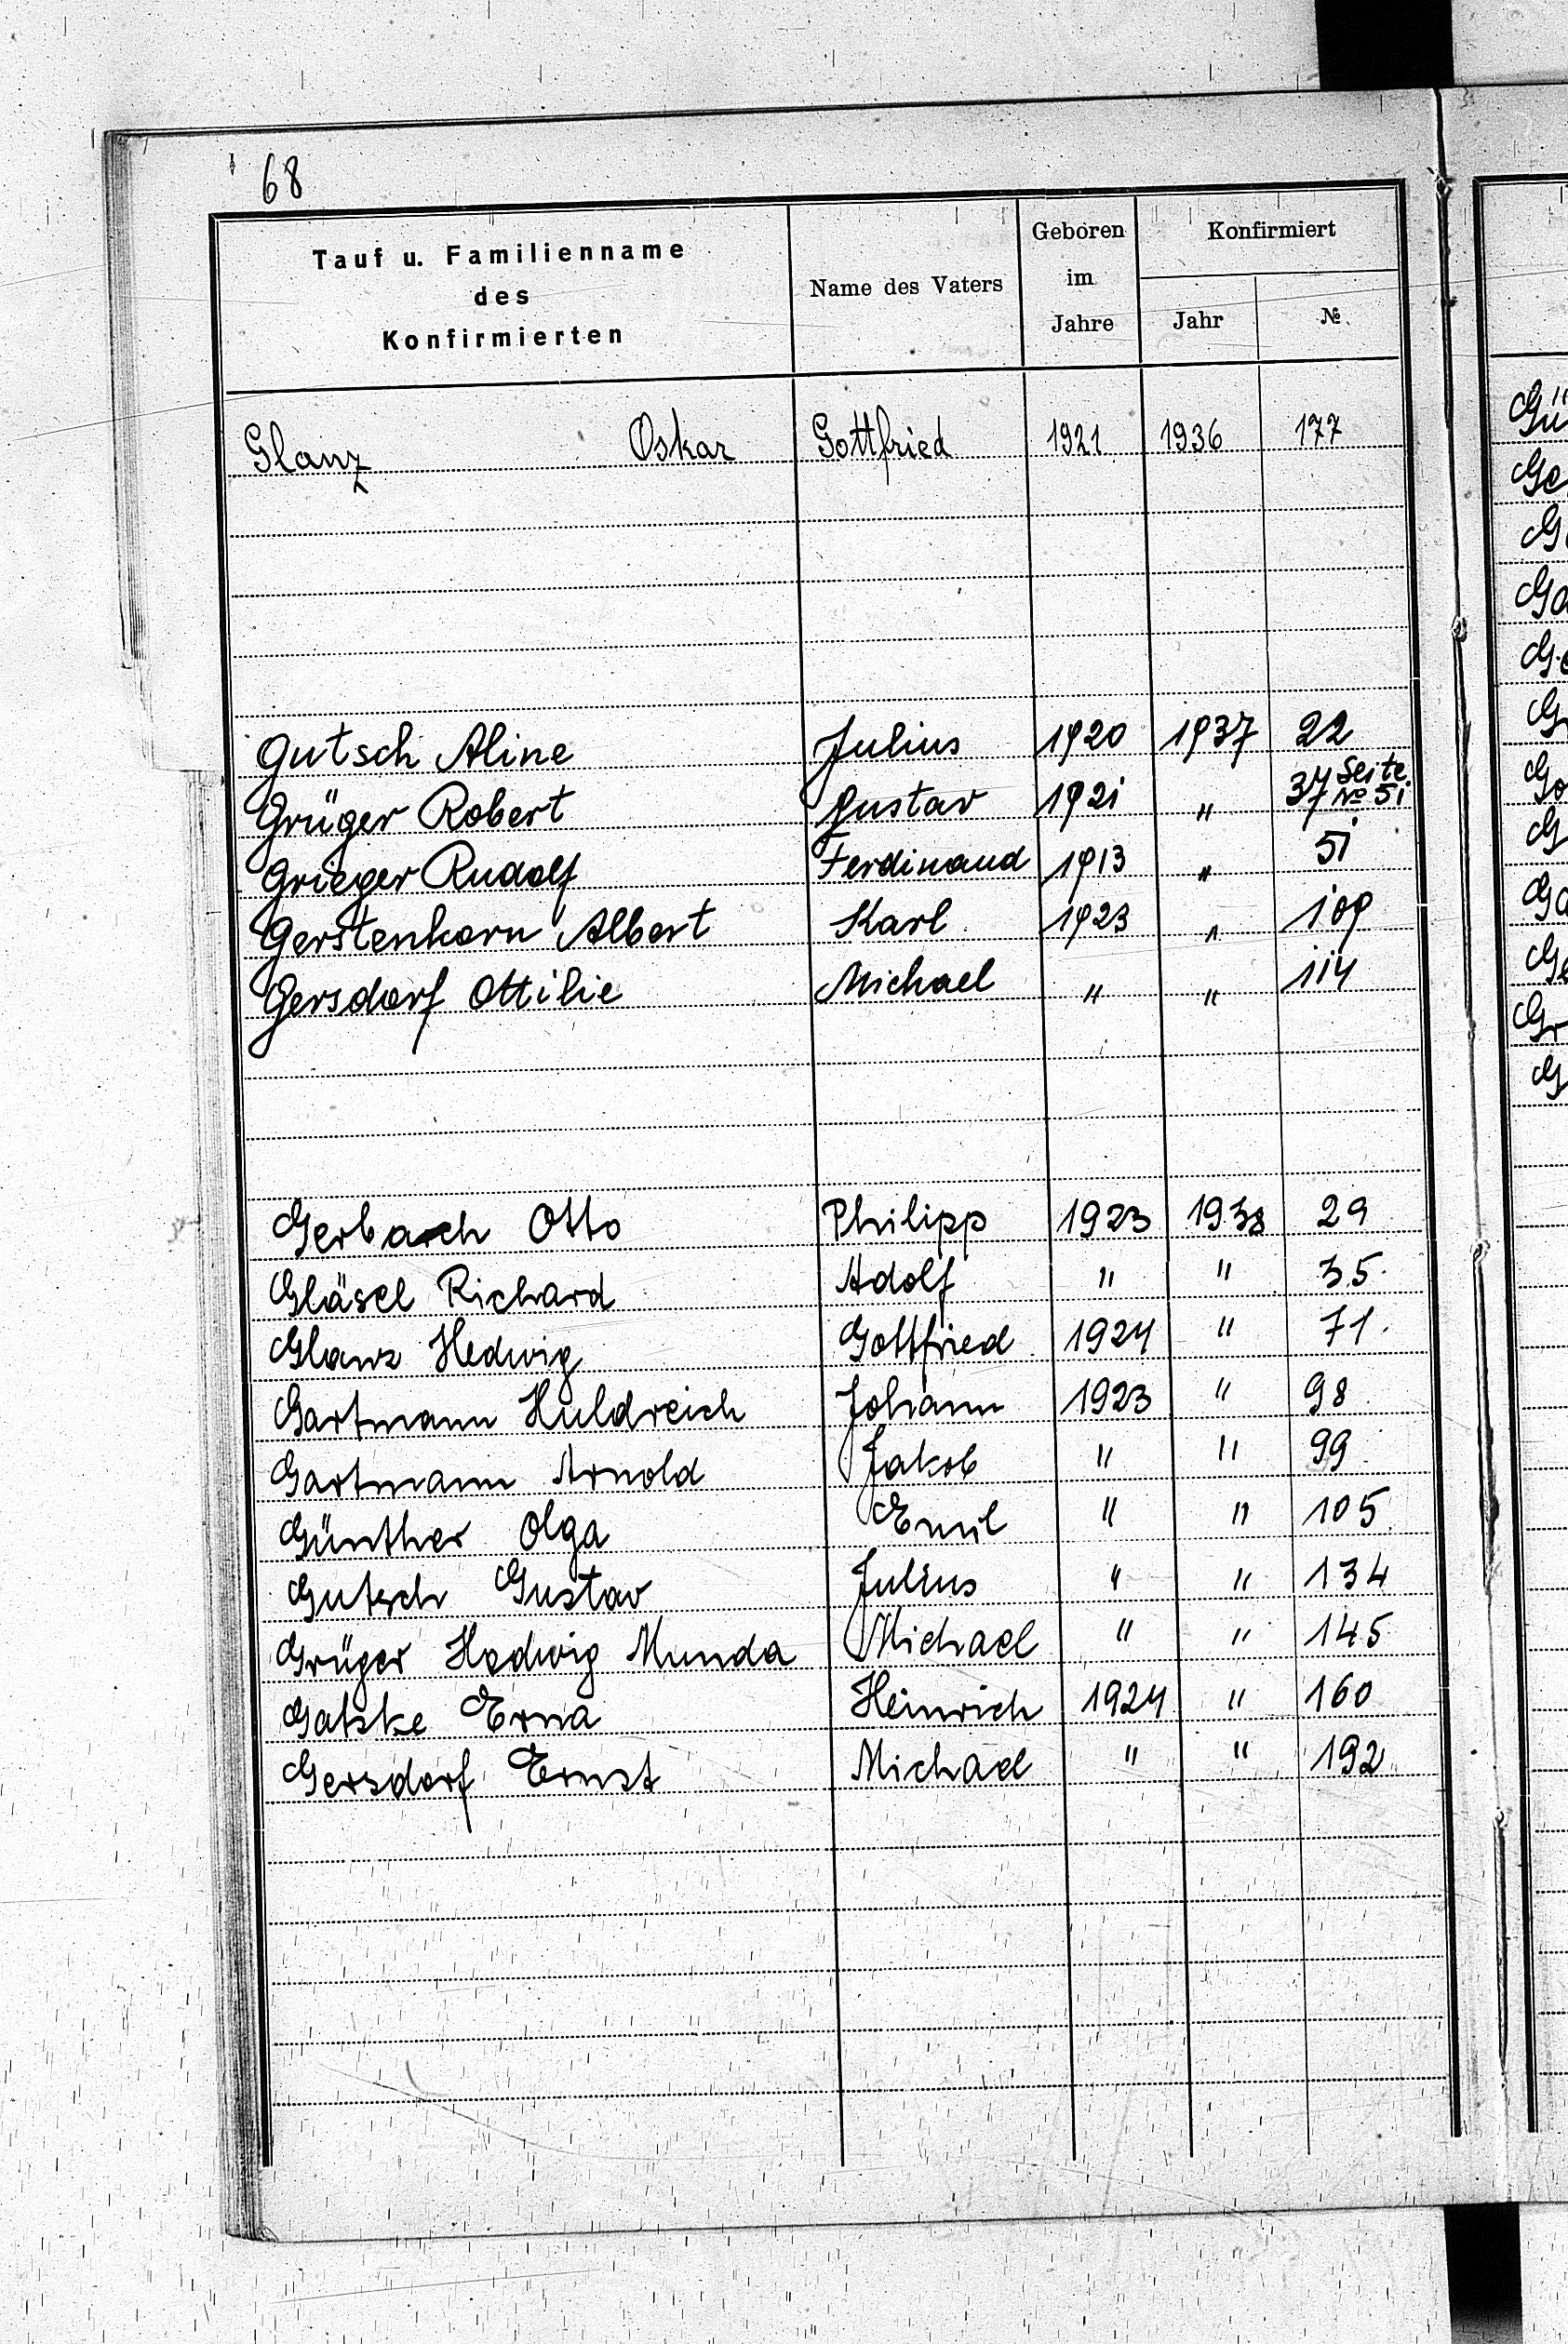 68
Tauf u. Familienname des Konfirmierten | Name des Vaters | Geboren im Jahre | Konfirmiert Jahr | №
Glanz Oskar | Gottfried | 1921 | 1936 | 177
Gutsch Aline | Julius | 1920 | 1937 | 22
Grüger Robert | Gustav | 1921 | " | 37 Seite № 51
Grieger Rudolf | Ferdinand | 1913 | " | 51
Gerstenkorn Albert | Karl | 1923 | " | 109
Gersdorf Ottilie | Michael | " | " | 114
Gerbach Otto | Philipp | 1923 | 1938 | 29
Gläsel Richard | Adolf | " | " | 35
Glanz Hedwig | Gottfried | 1924 | " | 71.
Gartmann Huldreich | Johann | 1923 | " | 98
Gartmann Arnold | Jakob | " | " | 99
Günther Olga | Emil | " | " | 105
Gutsch Gustav | Julius | " | " | 134
Grüger Hedwig Munda | Michael | " | " | 145
Gatzke Erna | Heinrich | 1924 | " | 160
Gersdorf Ernst | Michael | " | " | 192